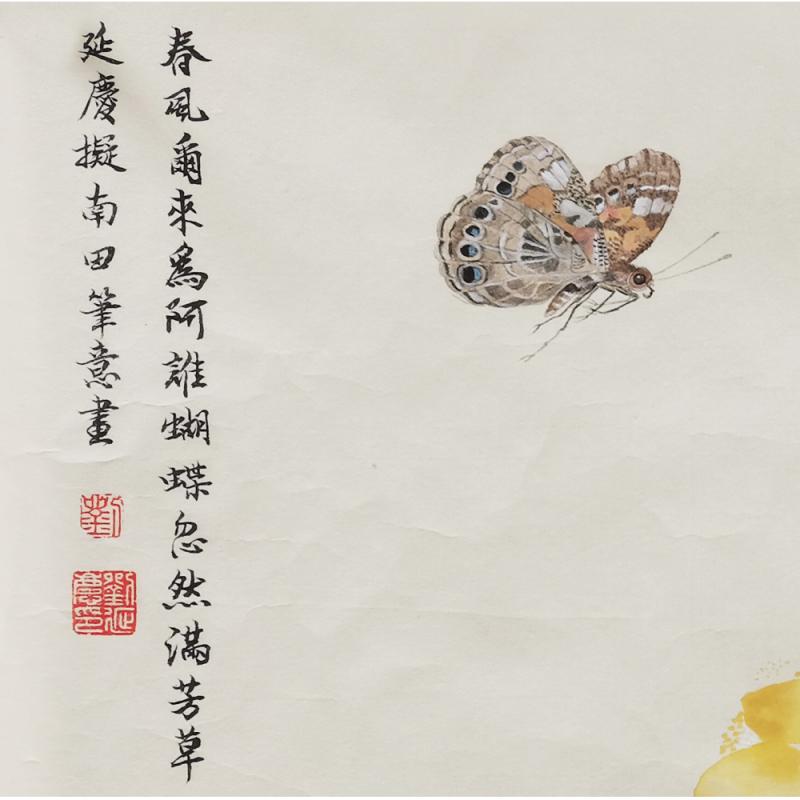 春風爾來爲阿誰蝴蝶忽然滿芳草
延慶擬南田筆意畫
劉
劉延慶印